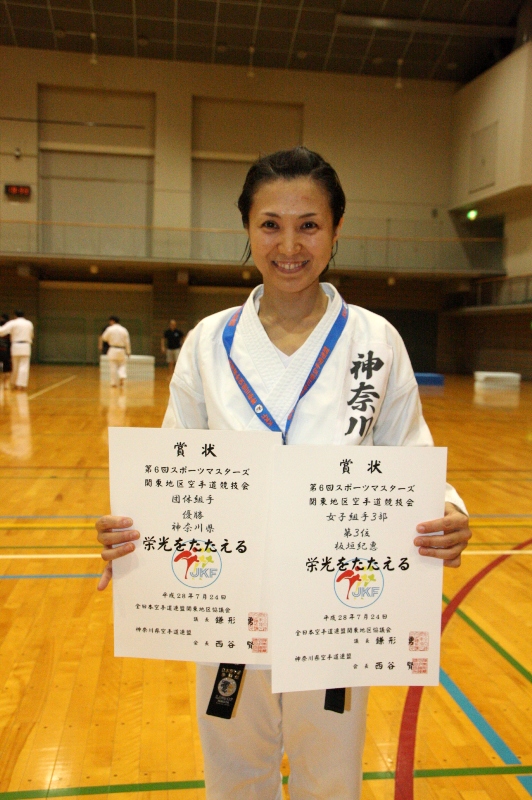 神奈川
賞状
第6回スポーツマスターズ
関東地区空手道競技会
団体組手
優勝
神奈川県
栄光をたたえる
JKF
平成28年7月24日
全日本空手道連盟関東地区協議会
議長 鎌形 勇
神奈川県空手道連盟
会長 西谷 賢
賞状
第6回スポーツマスターズ
関東地区空手道競技会
女子組手3部
第3位
板垣紀恵
栄光をたたえる
JKF
平成28年7月24日
全日本空手道連盟関東地区協議会
議長 鎌形
神奈川県空手道連盟
会長 西谷